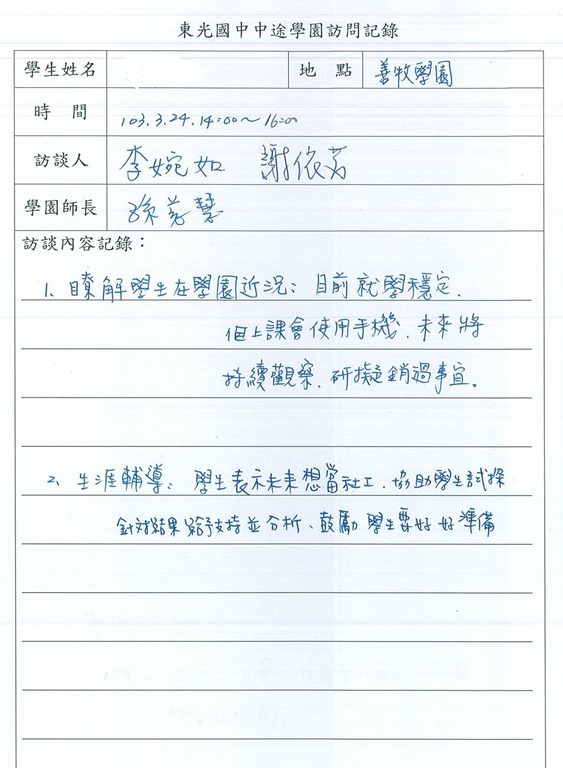 東光國中中途學園訪問記錄
學生姓名 地點 善牧學園
時間 103.3.24.14:00～16:00
訪談人 李婉如 謝依芳
學園師長 孫若慧
訪談內容記錄：
1、瞭解學生在學園近況：目前就學穩定.
但上課會使用手機.未來將
持續觀察.研擬銷過事宜。
2、生涯輔導：學生表示未來想當社工.協助學生試探
針對結果給予支持並分析、鼓勵學生要好好準備